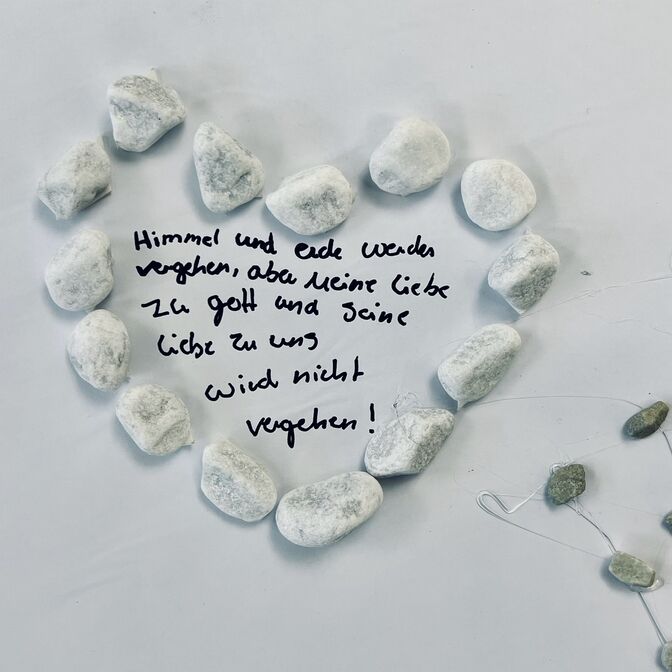 Himmel und erde werden
vergehen, aber Meine Liebe
zu gott und seine
Liebe zu uns
wird nicht
vergehen!